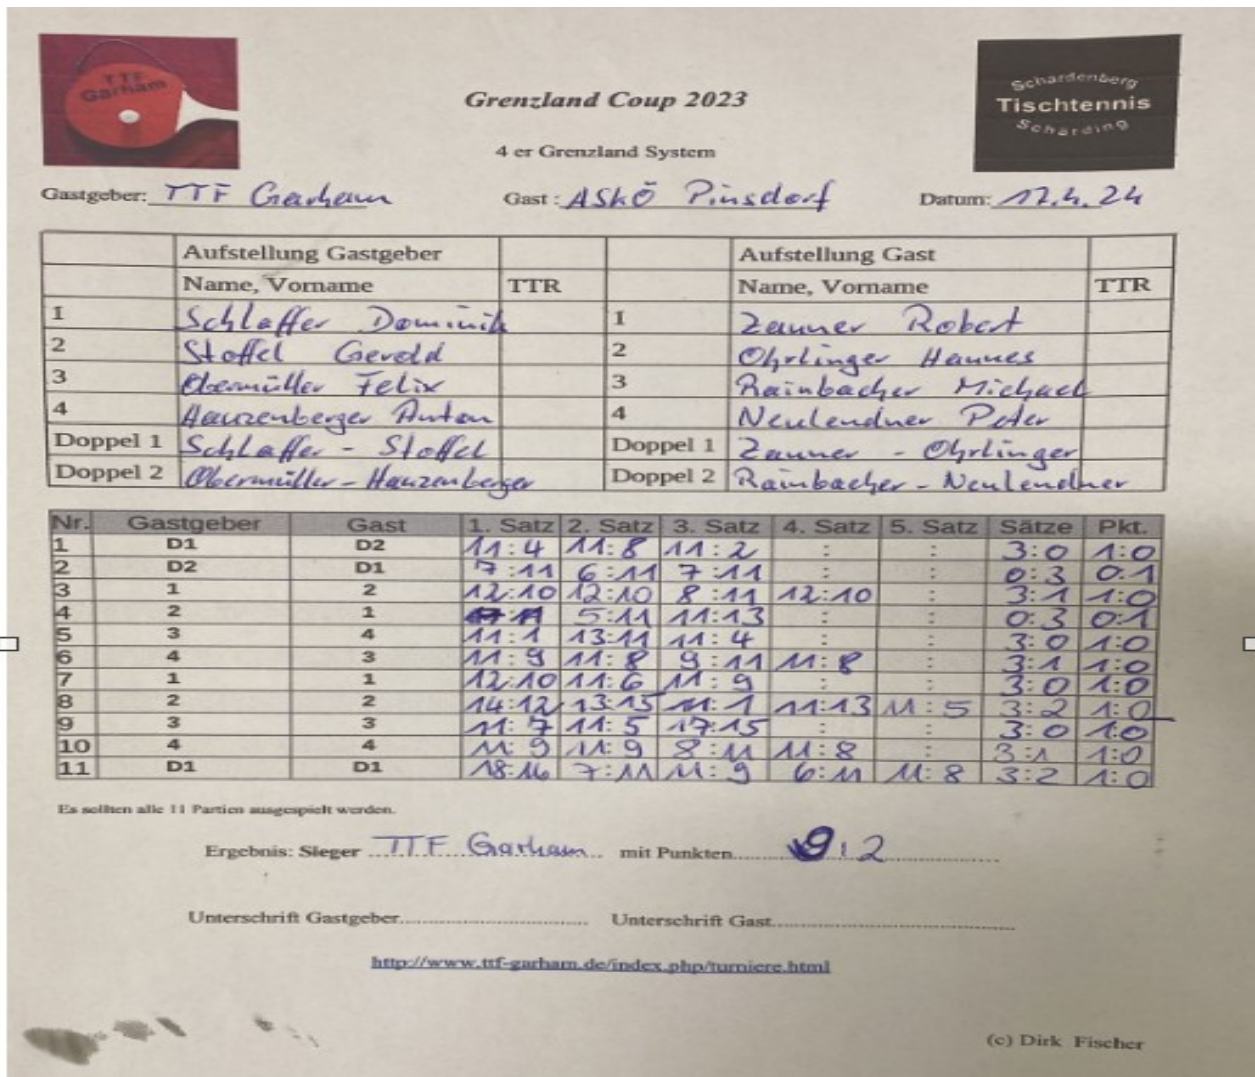 TTF
Garham
Grenzland Coup 2023
4 er Grenzland System
Schardenberg
Tischtennis
Schärding
Gastgeber: TTF Garham Gast : ASKÖ Pinsdorf Datum: 12.4.24
Aufstellung Gastgeber Aufstellung Gast
Name, Vorname TTR Name, Vorname TTR
1 Schlaffer Dominik 1 Zauner Robert
2 Stoffel Gerold 2 Ohrlinger Hannes
3 Obermüller Felix 3 Rainbacher Michael
4 Hauzenberger Anton 4 Neulendner Peter
Doppel 1 Schlaffer - Stoffel Doppel 1 Zauner - Ohrlinger
Doppel 2 Obermüller - Hauzenberger Doppel 2 Rainbacher - Neulendner
Nr. Gastgeber Gast 1. Satz 2. Satz 3. Satz 4. Satz 5. Satz Sätze Pkt.
1 D1 D2 11:4 11:8 11:2 : : 3:0 1:0
2 D2 D1 7:11 6:11 7:11 : : 0:3 0:1
3 1 2 12:10 12:10 8:11 12:10 : 3:1 1:0
4 2 1 :11 5:11 11:13 : : 0:3 0:1
5 3 4 11:1 13:11 11:4 : : 3:0 1:0
6 4 3 11:9 11:8 9:11 11:8 : 3:1 1:0
7 1 1 12:10 11:6 11:9 : : 3:0 1:0
8 2 2 14:12 13:15 11:1 11:13 11:5 3:2 1:0
9 3 3 11:7 11:5 17:15 : : 3:0 1:0
10 4 4 11:9 11:9 8:11 11:8 : 3:1 1:0
11 D1 D1 18:16 7:11 11:9 6:11 11:8 3:2 1:0
Es sollten alle 11 Partien ausgespielt werden.
Ergebnis: Sieger TTF Garham mit Punkten 9:2
Unterschrift Gastgeber Unterschrift Gast
http://www.ttf-garham.de/index.php/turniere.html
(c) Dirk Fischer